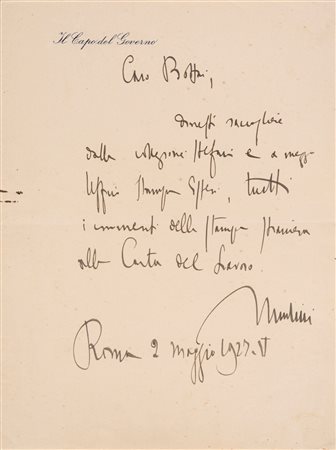 Il Capo del Governo
Caro Bottai,
dovresti raccogliere
dalla collezione Stefani e a mezzo
Uffici Stampa Esteri, tutti
i commenti della Stampa straniera
alla Carta del Lavoro.
Mussolini
Roma 2 maggio 1927. V